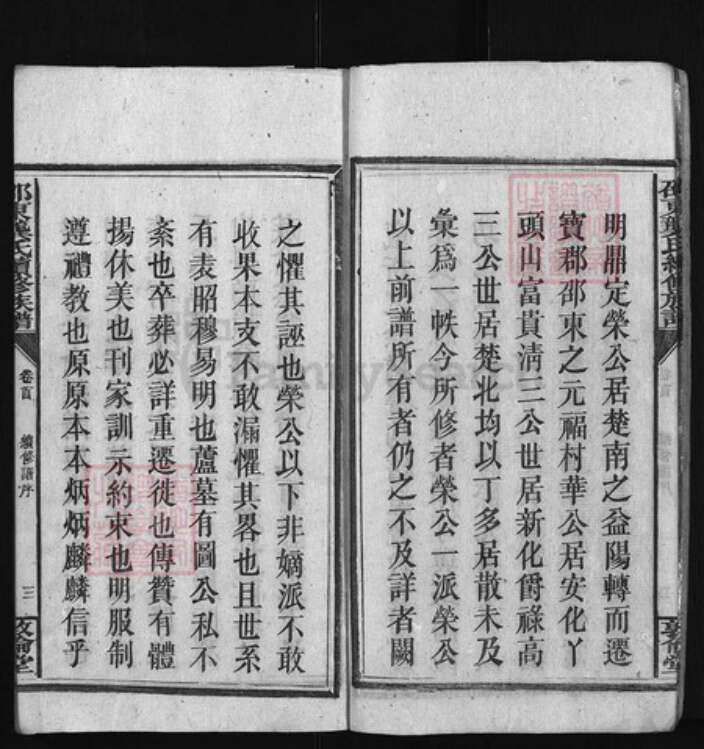 明鼎定榮公居楚南之益陽轉而遷
寶郡邵東之元福村華公居安化丫
頭山富貴清三公世居新化爵祿高
三公世居楚北均以丁多居散未及
彙爲一帙今所修者榮公一派榮公
以上前譜所有者仍之不及詳者闕
之懼其誣也榮公以下非嫡派不敢
收果本支不敢漏懼其畧也且世系
有表昭穆易明也蘆墓有圖公私不
紊也卒葬必詳重遷徙也傳贊有體
揚休美也刊家訓示約束也明服制
遵禮教也原原本本炳炳麟麟信乎
邵東
氏續修族譜
卷首
續修譜序
三
敦倫堂